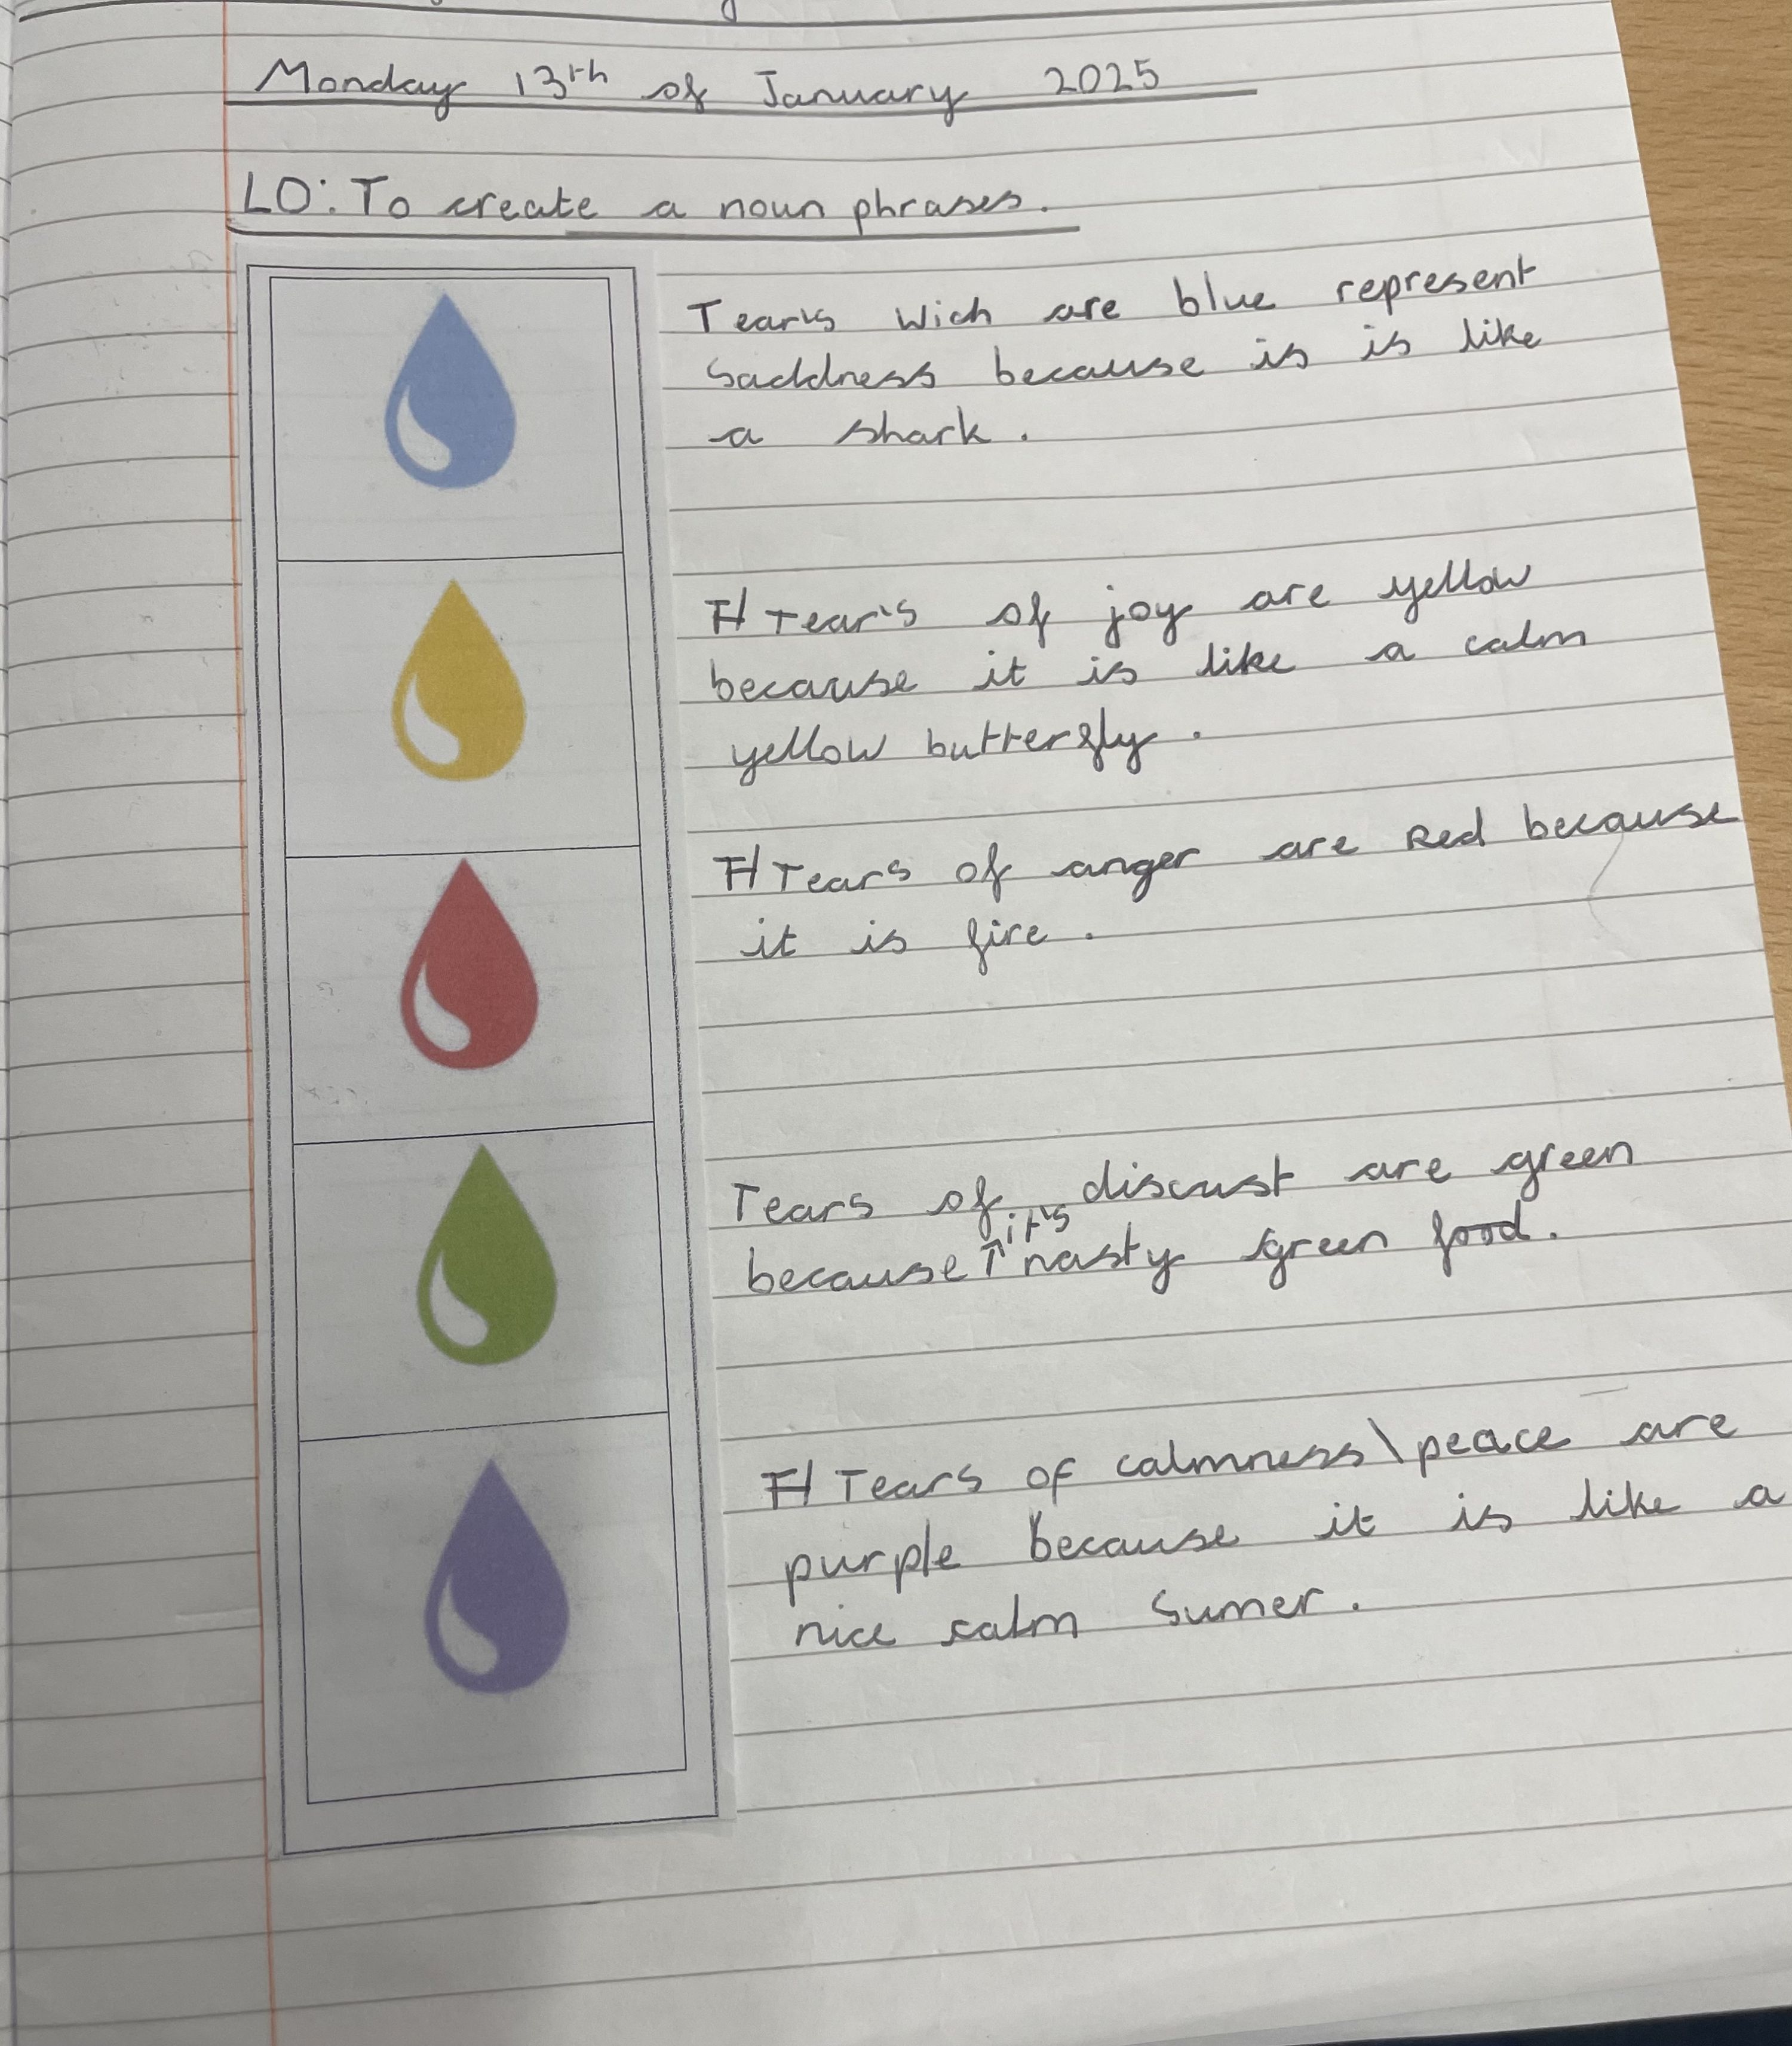 Monday 13th of January 2025
LO: To create a noun phrases.
Tear's wich are blue represent
saddness because is is like
a shark.
Tear's of joy are yellow
because it is like a calm
yellow butterfly.
Tears of anger are Red because
it is fire.
Tears of discust are green
because it's nasty green food.
Tears of calmness\peace are
purple because it is like a
nice calm sumer.